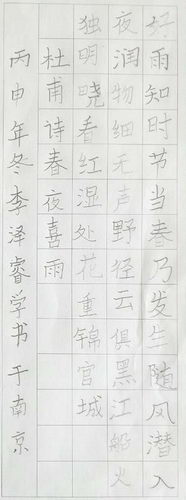 好雨知时节当春乃发生随风潜入
夜润物细无声野径云俱黑江船火
独明晓看红湿处花重锦官城
杜甫诗春夜喜雨
丙申年冬李泽睿学书于南京